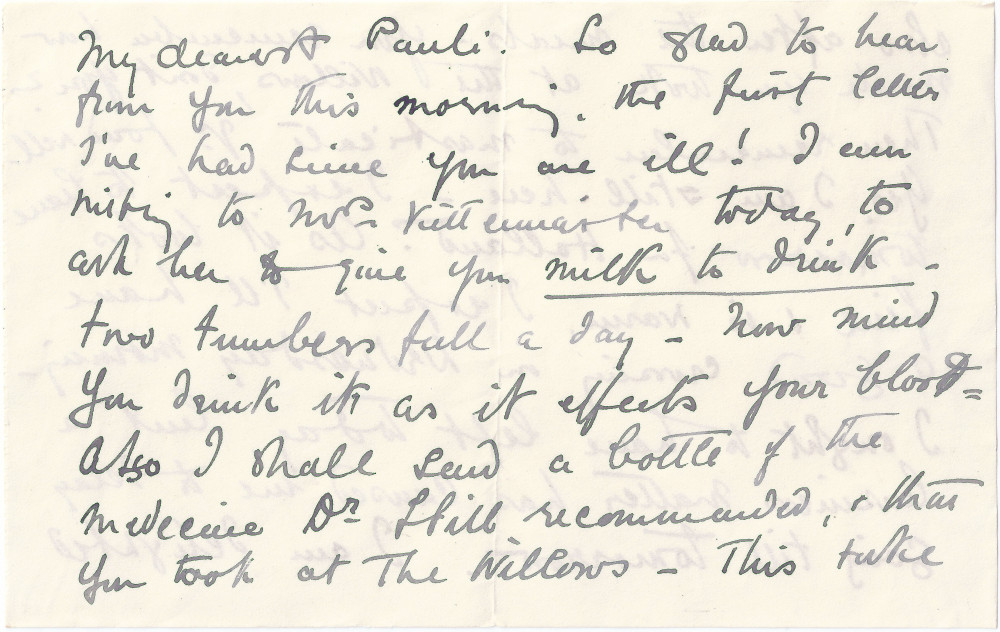 My dearest Pauli - So glad to hear
from you this morning, the first letter
I've had since you are ill! I am
writing to Mrs Kittermaster today, to
ask her to give you milk to drink -
two tumblers full a day - Now mind
you drink it as it effects your blood =
Also I shall send a bottle of the
medecine Dr Still recommended, & that
you took at The Willows - This take